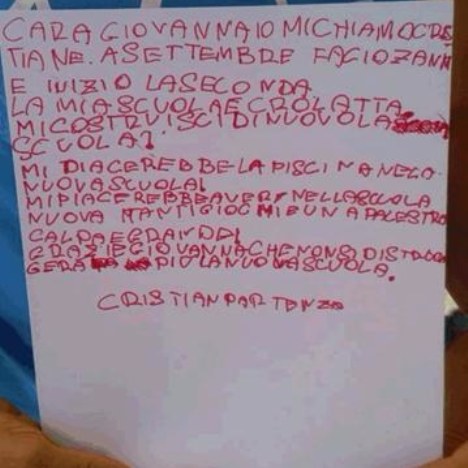 CARA GIOVANNA IO MI CHIAMO CRIS
TIAN E. A SETTEMBRE FACIO 7 ANNI
E INIZIO LA SECONDA
LA MIA SCUOLA E CROLATTA
MI COSTRUISCI DI NUOVO LA
SCUOLA?
MI PIACEREBBE LA PISCINA NELO
NUOVA SCUOLA!
MI PIACEREBBE AVERE NELLA SCUOLA
NUOVA TANTI GIOCHI E UNA PALESTRA
CALDA E GRANDE!
GRAZIE GIOVANNA CHE NON SI DISTRUG
GERA PIU LA NUOVA SCUOLA.
CRISTIAN